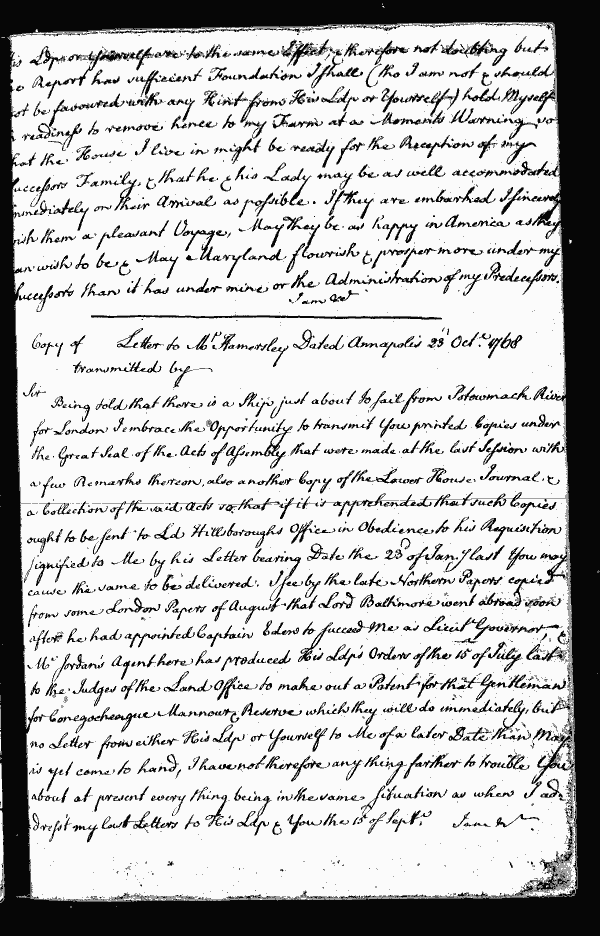 is Ldp or Yourself are to the same Effect & therefore not doubting but
Report has sufficient Foundation I shall (tho I am not & should
not be favoured with any Hint from His Ldp or Yourself) hold Myself
readiness to remove hence to my Farm at a Moments Warning so
hat the House I live in might be ready for the Reception of my
uccessors Family, & that he & his Lady may be as well accommodated
mmediately on their Arrival as possible. If they are embarked I sincerely
ish them a pleasant Voyage, May they be as happy in America as they
an wish to be & May Maryland flourish & prosper more under my
uccessors than it has under mine or the Administration of my Predecessors.
I am &ca
Copy of Letter to Mr. Hamersley Dated Annapolis 23d Octr. 1768
transmitted by
Sir
Being told that there is a Ship just about to sail from Potowmack River
for London I embrace the Opportunity to transmit You printed Copies under
the Great Seal of the Acts of Assembly that were made at the last Session with
a few Remarks thereon, also another Copy of the Lower House Journal &
a Collection of the said Acts so that if it is apprehended that such Copies
ought to be sent to Ld Hillsboroughs Office in Obedience to his Requisition
signified to Me by his Letter bearing Date the 23d of Janry last You may
cause the same to be delivered. I see by the late Northern Papers copied
from some London Papers of August that Lord Baltimore went abroad soon
after he had appointed Captain Eden to succeed Me as Lieut. Governor, &
Mr Jordan's Agent here has produced His Ldp's Orders of the 15 of July last
to the Judges of the Land Office to make out a Patent for that Gentleman
for Conegocheague Mannour & Reserve which they will do immediately, but
no Letter from either His Ldp or Yourself to Me of a later Date than May
is yet come to hand, I have not therefore any thing farther to trouble You
about at present every thing being in the same Situation as when I ad-
dress't my last Letters to His Ldp & You the 15 of Septr. I am &ca